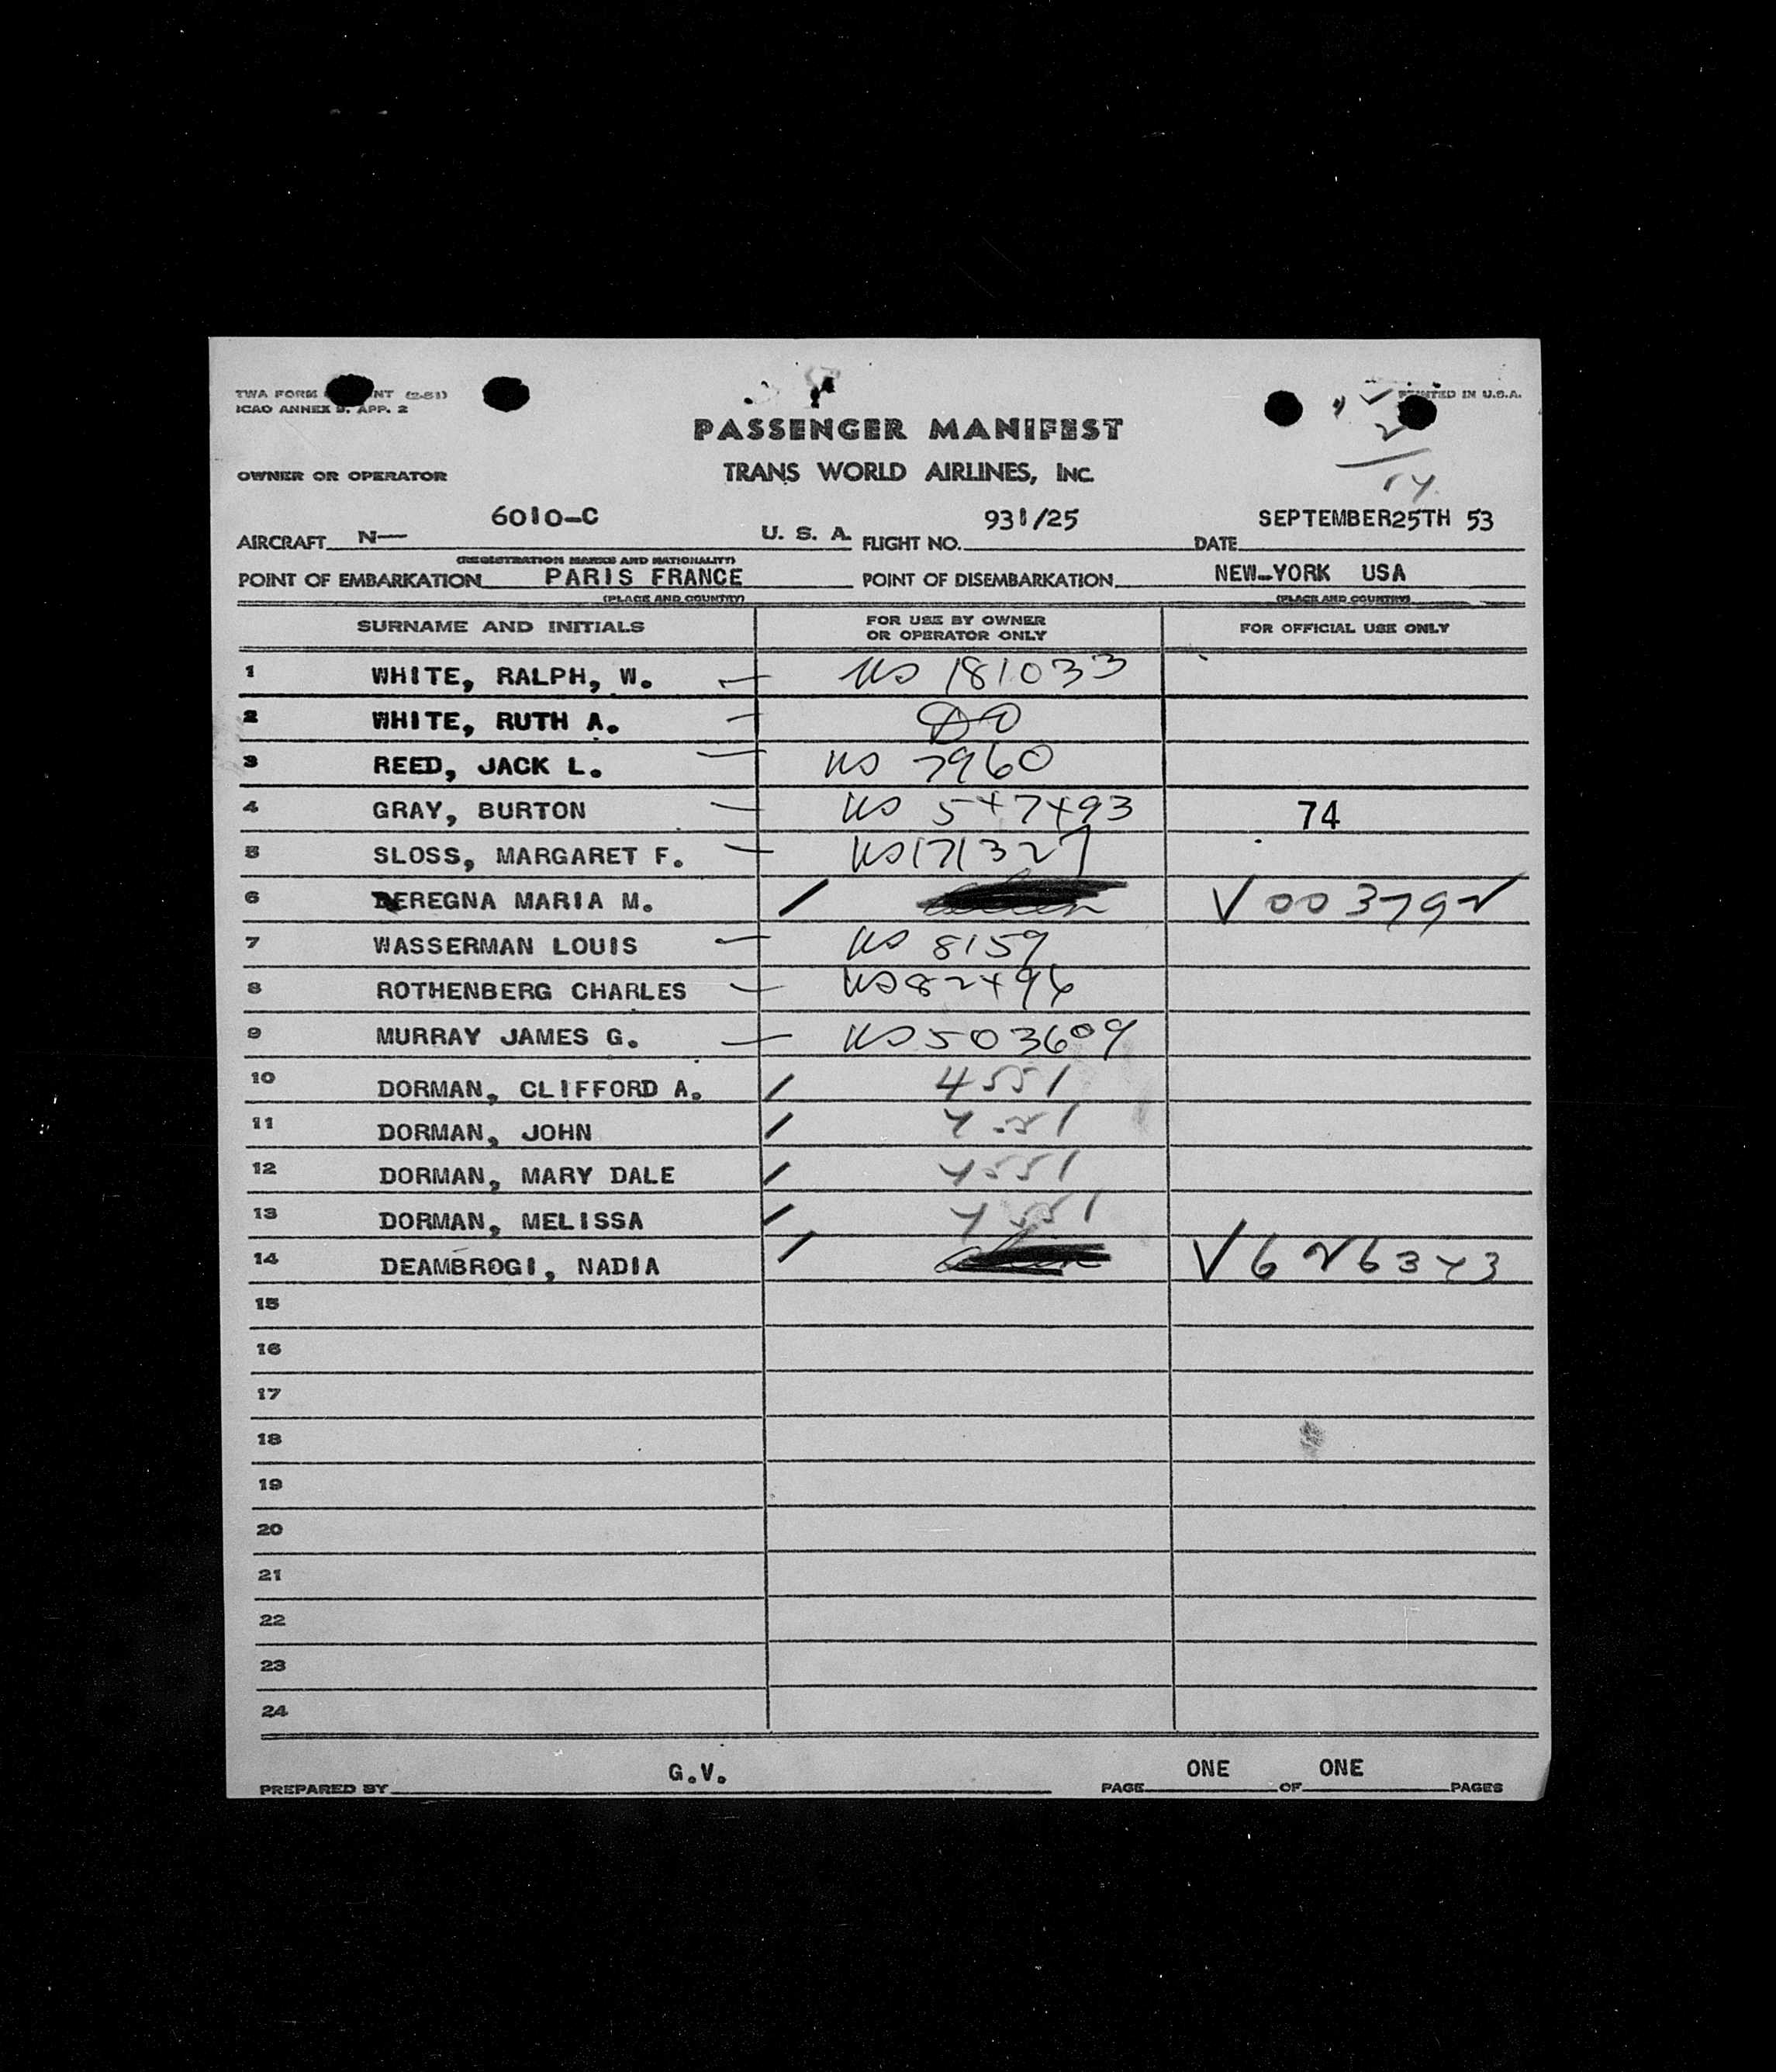 TWA FORM NT (2-51)
ICAO ANNEX 9, APP. 2
PRINTED IN U.S.A.
PASSENGER MANIFEST
OWNER OR OPERATOR TRANS WORLD AIRLINES, INC.
14
AIRCRAFT N— 6010-C U. S. A. FLIGHT NO. 931/25 DATE SEPTEMBER25TH 53
(REGISTRATION MARKS AND NATIONALITY)
POINT OF EMBARKATION PARIS FRANCE POINT OF DISEMBARKATION NEW-YORK USA
(PLACE AND COUNTRY) (PLACE AND COUNTRY)
SURNAME AND INITIALS FOR USE BY OWNER OR OPERATOR ONLY FOR OFFICIAL USE ONLY
1 WHITE, RALPH, W. — US 181033
2 WHITE, RUTH A. — DO
3 REED, JACK L. — US 7960
4 GRAY, BURTON — US 547493 74
5 SLOSS, MARGARET F. — US 171327
6 DEREGNA MARIA M. / V 003792
7 WASSERMAN LOUIS — US 8159
8 ROTHENBERG CHARLES — US 82496
9 MURRAY JAMES G. — US 503609
10 DORMAN, CLIFFORD A. / 4551
11 DORMAN, JOHN / 4551
12 DORMAN, MARY DALE / 4551
13 DORMAN, MELISSA / 4551
14 DEAMBROGI, NADIA / V 626343
15
16
17
18
19
20
21
22
23
24
PREPARED BY G.V. PAGE ONE OF ONE PAGES